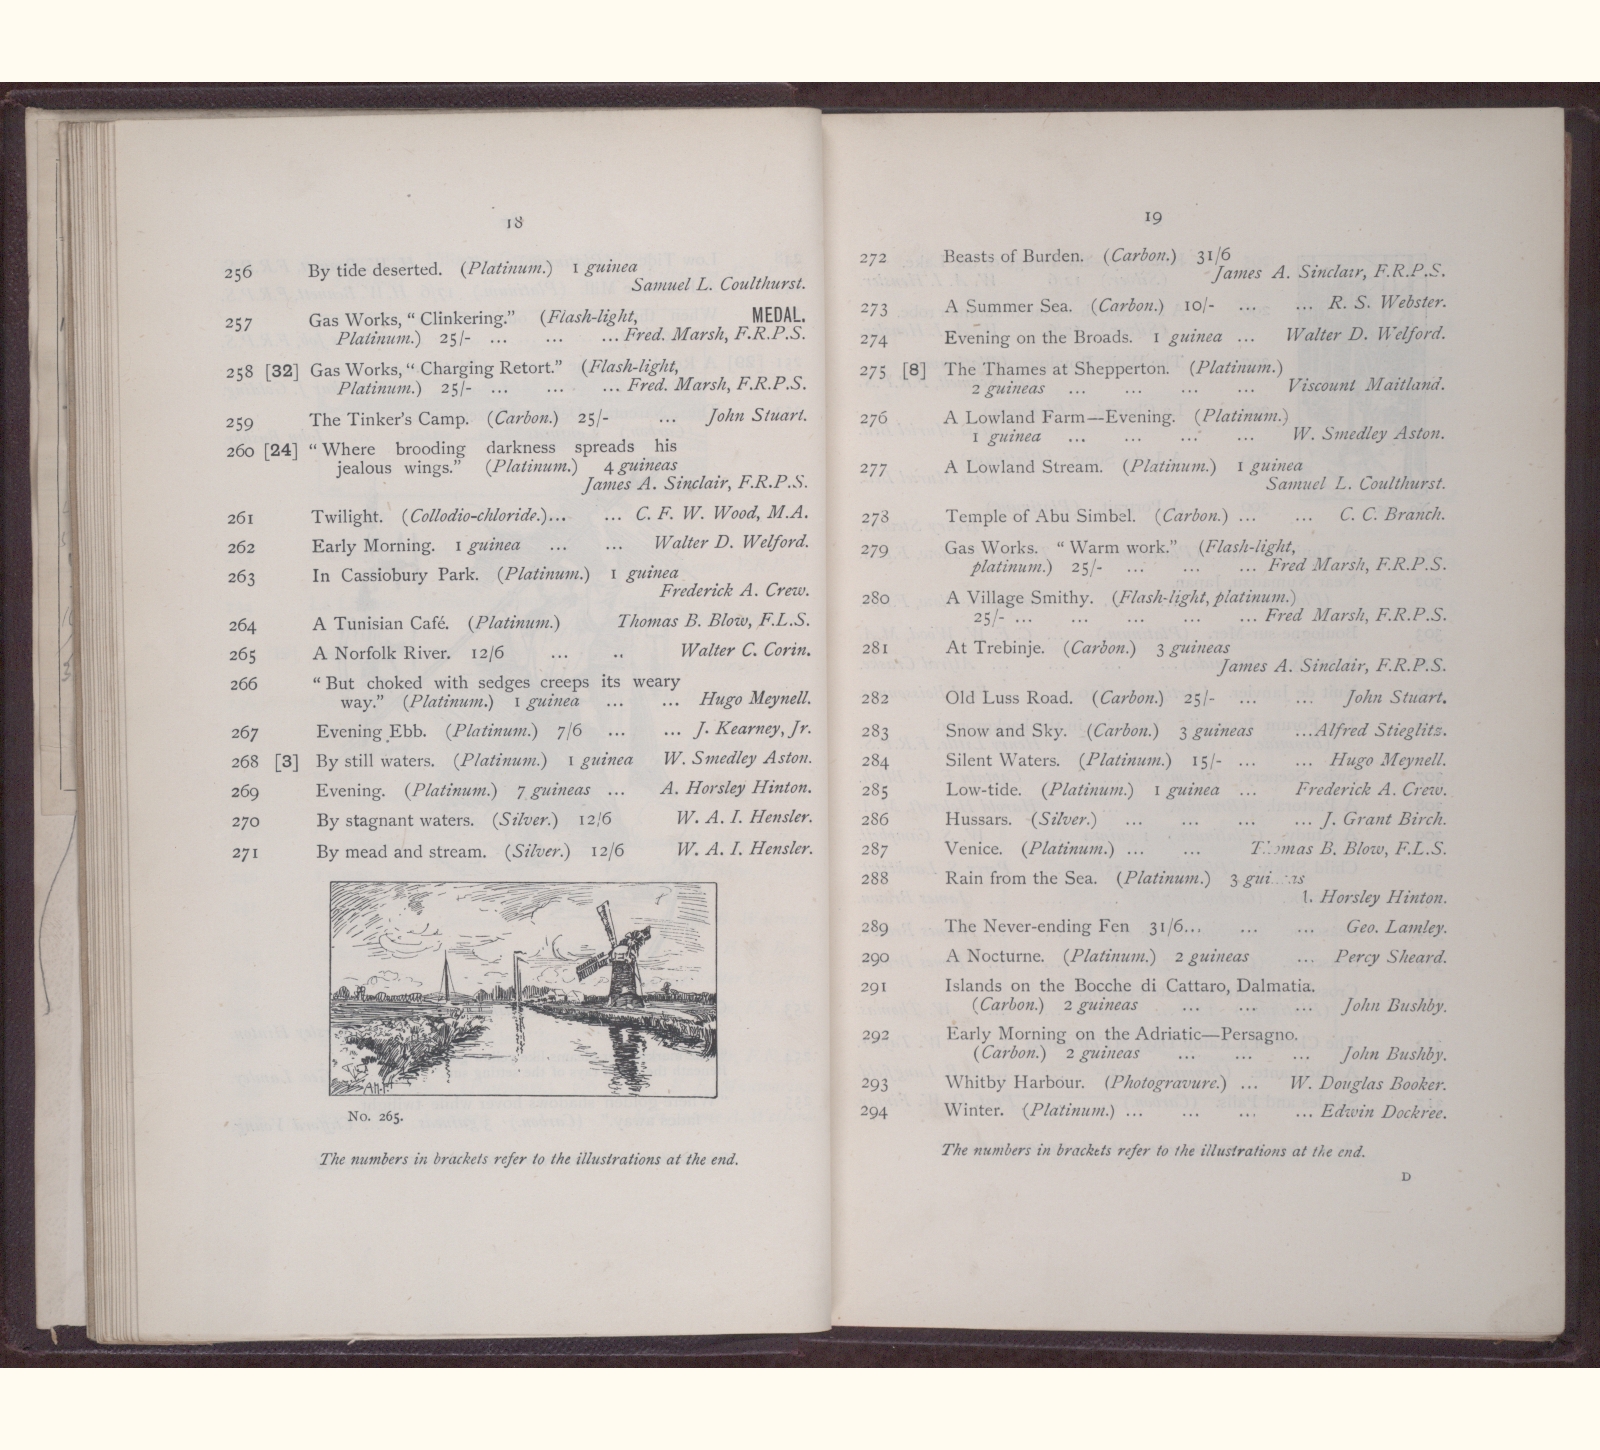 18
256 By tide deserted. (Platinum.) 1 guinea
Samuel L. Coulthurst.
257 Gas Works, “ Clinkering.” (Flash-light, MEDAL.
Platinum.) 25/- ... ... ... Fred. Marsh, F.R.P.S.
258 [32] Gas Works, “ Charging Retort.” (Flash-light,
Platinum.) 25/- ... ... ... Fred. Marsh, F.R.P.S.
259 The Tinker’s Camp. (Carbon.) 25/- ... John Stuart.
260 [24] “ Where brooding darkness spreads his
jealous wings.” (Platinum.) 4 guineas
James A. Sinclair, F.R.P.S.
261 Twilight. (Collodio-chloride.)... ... C. F. W. Wood, M.A.
262 Early Morning. 1 guinea ... ... Walter D. Welford.
263 In Cassiobury Park. (Platinum.) 1 guinea
Frederick A. Crew.
264 A Tunisian Café. (Platinum.) Thomas B. Blow, F.L.S.
265 A Norfolk River. 12/6 ... .. Walter C. Corin.
266 “ But choked with sedges creeps its weary
way.” (Platinum.) 1 guinea ... ... Hugo Meynell.
267 Evening Ebb. (Platinum.) 7/6 ... ... J. Kearney, Jr.
268 [3] By still waters. (Platinum.) 1 guinea W. Smedley Aston.
269 Evening. (Platinum.) 7 guineas ... A. Horsley Hinton.
270 By stagnant waters. (Silver.) 12/6 W. A. I. Hensler.
271 By mead and stream. (Silver.) 12/6 W. A. I. Hensler.
No. 265.
The numbers in brackets refer to the illustrations at the end.
19
272 Beasts of Burden. (Carbon.) 31/6
James A. Sinclair, F.R.P.S.
273 A Summer Sea. (Carbon.) 10/- ... ... R. S. Webster.
274 Evening on the Broads. 1 guinea ... Walter D. Welford.
275 [8] The Thames at Shepperton. (Platinum.)
2 guineas ... ... ... ... Viscount Maitland.
276 A Lowland Farm—Evening. (Platinum.)
1 guinea ... ... ... ... W. Smedley Aston.
277 A Lowland Stream. (Platinum.) 1 guinea
Samuel L. Coulthurst.
278 Temple of Abu Simbel. (Carbon.) ... ... C. C. Branch.
279 Gas Works. “ Warm work.” (Flash-light,
platinum.) 25/- ... ... ... Fred Marsh, F.R.P.S.
280 A Village Smithy. (Flash-light, platinum.)
25/- ... ... ... ... ... Fred Marsh, F.R.P.S.
281 At Trebinje. (Carbon.) 3 guineas
James A. Sinclair, F.R.P.S.
282 Old Luss Road. (Carbon.) 25/- ... ... John Stuart.
283 Snow and Sky. (Carbon.) 3 guineas ...Alfred Stieglitz.
284 Silent Waters. (Platinum.) 15/- ... ... Hugo Meynell.
285 Low-tide. (Platinum.) 1 guinea ... Frederick A. Crew.
286 Hussars. (Silver.) ... ... ... ... J. Grant Birch.
287 Venice. (Platinum.) ... ... B. Blow, F.L.S.
288 Rain from the Sea. (Platinum.) 3
Horsley Hinton.
289 The Never-ending Fen 31/6... ... ... Geo. Lamley.
290 A Nocturne. (Platinum.) 2 guineas ... Percy Sheard.
291 Islands on the Bocche di Cattaro, Dalmatia.
(Carbon.) 2 guineas ... ... ... John Bushby.
292 Early Morning on the Adriatic—Persagno.
(Carbon.) 2 guineas ... ... ... John Bushby.
293 Whitby Harbour. (Photogravure.) ... W. Douglas Booker.
294 Winter. (Platinum.) ... ... ... ... Edwin Dockree.
The numbers in brackets refer to the illustrations at the end.
D